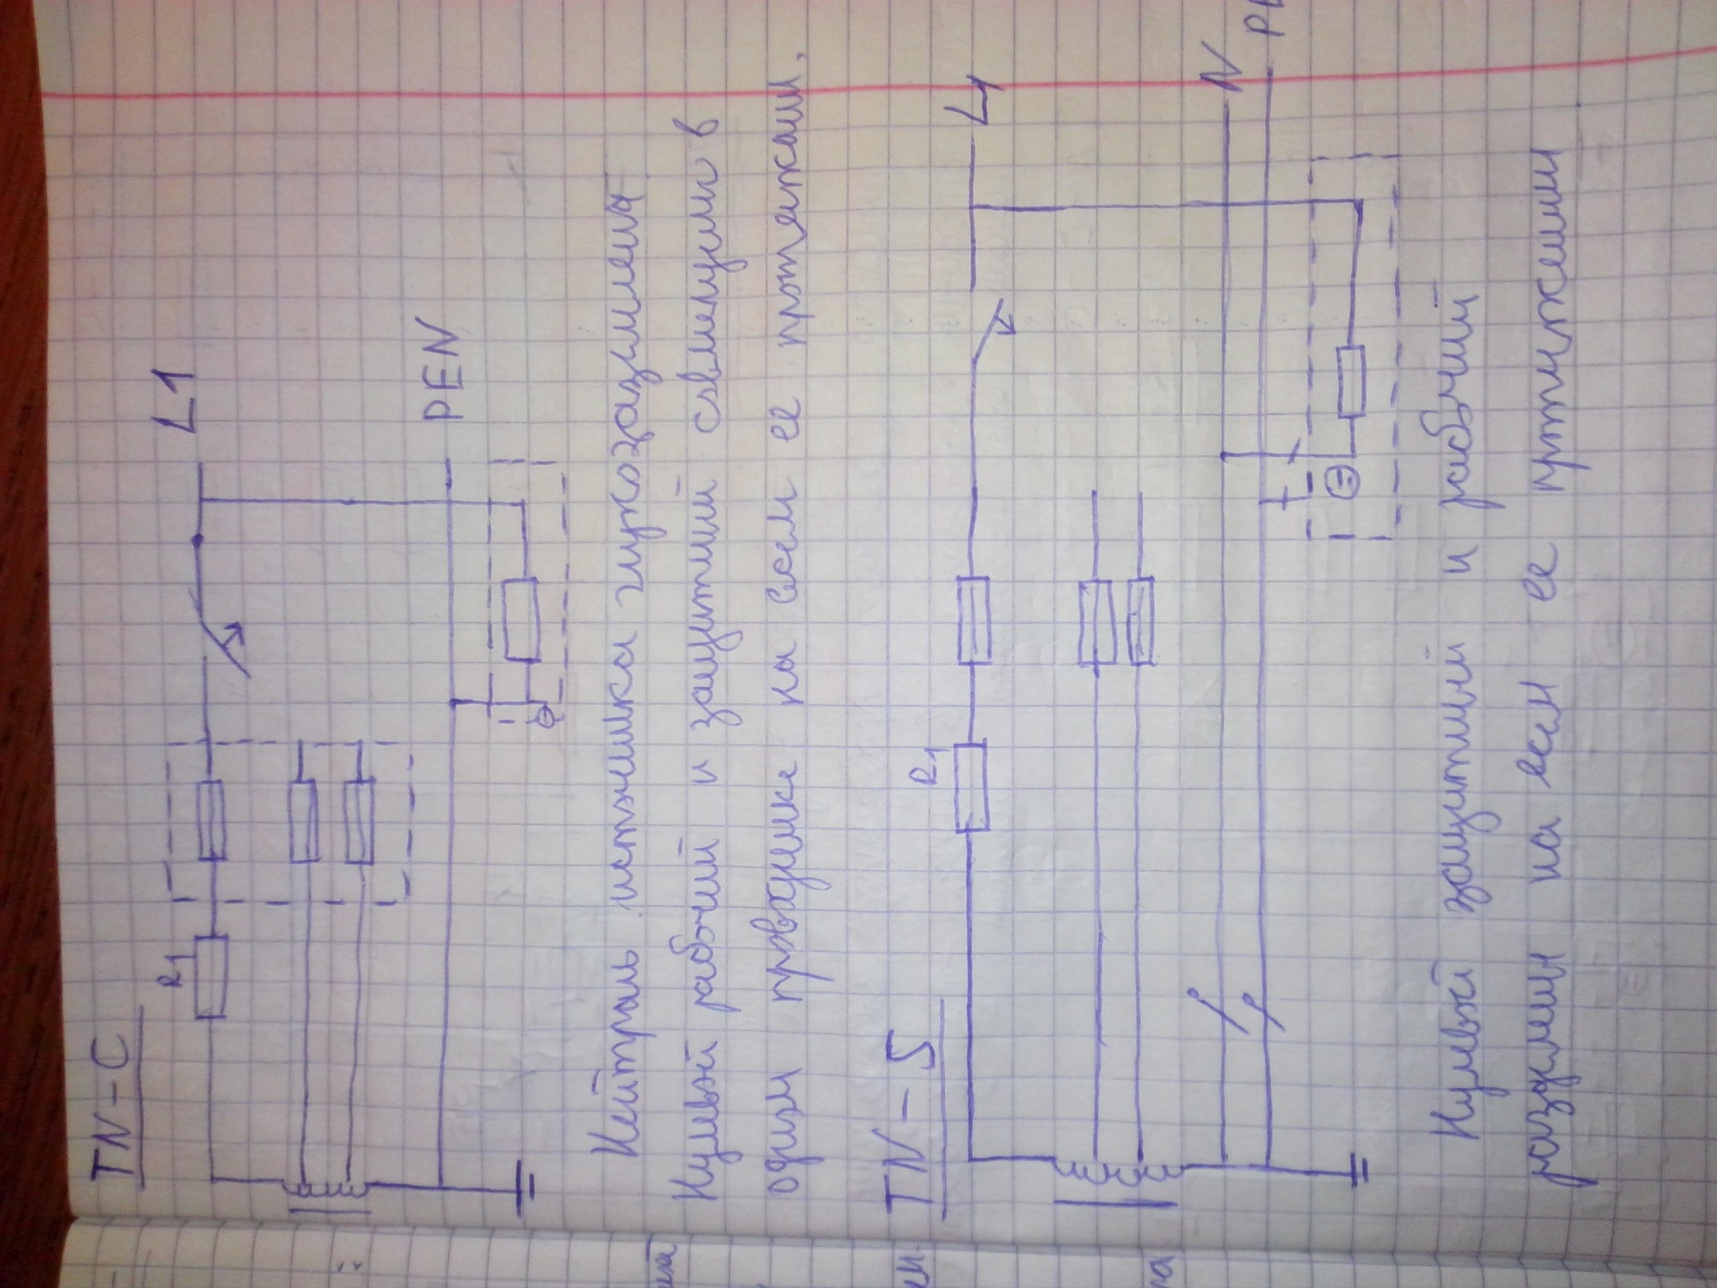 TN-C
R1
L1
PEN
Нейтраль источника глухозаземлена
Нулевой рабочий и защитний совмещени в
одном проводнике на всем ее протяжении.
TN-S
R1
L1
N
Нулевой защитний и рабочий
разделни на всем ее протяжении